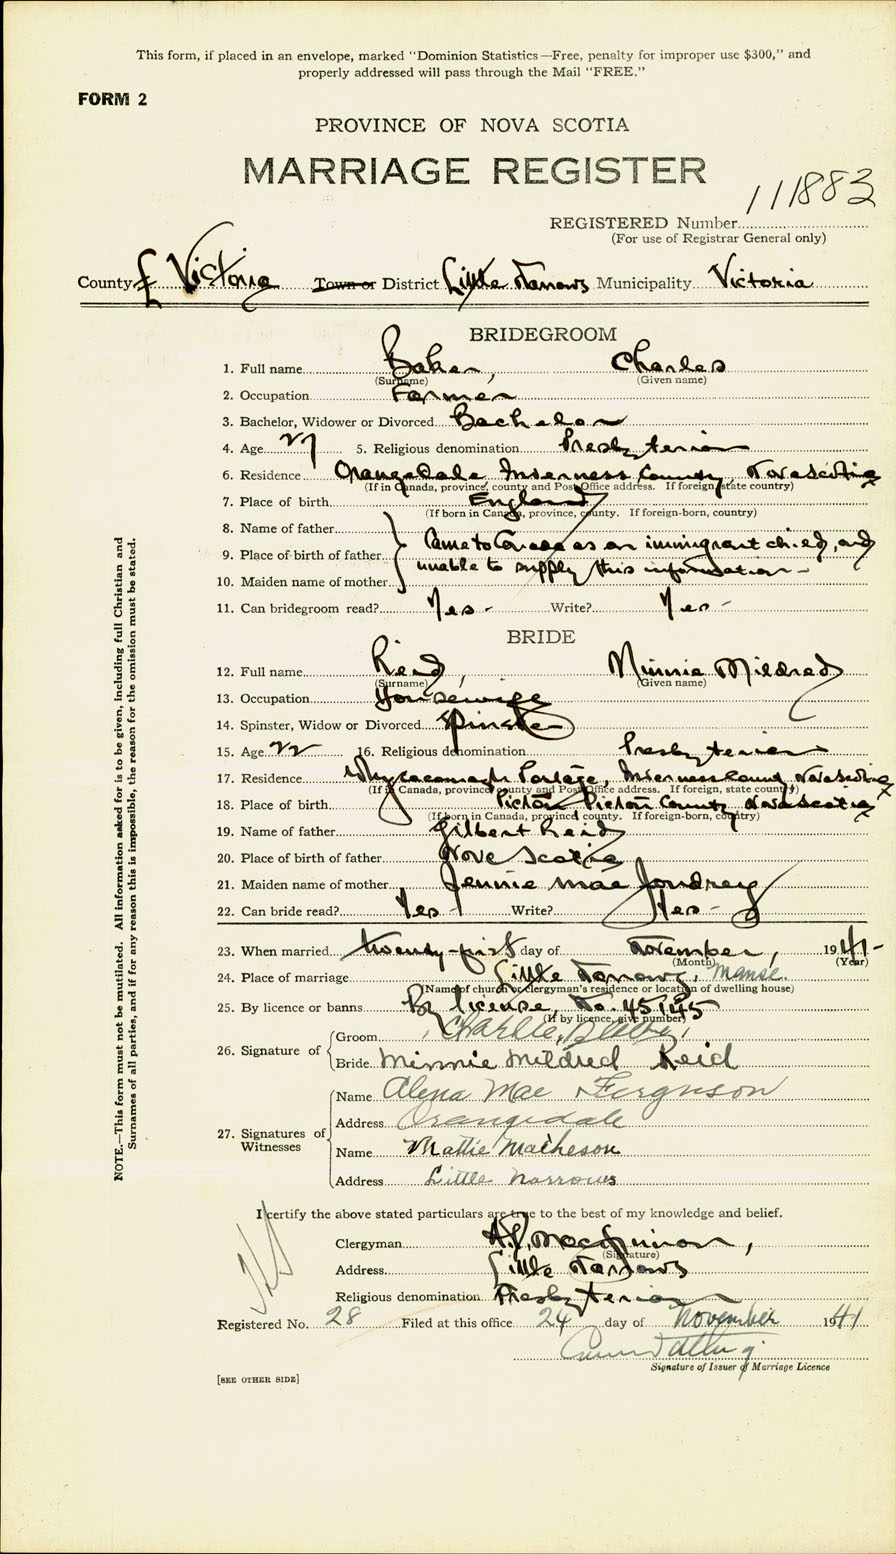 This form, if placed in an envelope, marked "Dominion Statistics—Free, penalty for improper use $300," and
properly addressed will pass through the Mail "FREE."
FORM 2
PROVINCE OF NOVA SCOTIA
MARRIAGE REGISTER
111883
REGISTERED Number
(For use of Registrar General only)
County of Victoria Town or District Little Narrows Municipality Victoria
BRIDEGROOM
1. Full name Baker, Charles
(Surname) (Given name)
2. Occupation Farmer
3. Bachelor, Widower or Divorced Bachelor
4. Age 27 5. Religious denomination Presbyterian
6. Residence Orangedale, Inverness County, Nova Scotia
(If in Canada, province, county and Post Office address. If foreign, state country)
7. Place of birth England
(If born in Canada, province, county. If foreign-born, country)
8. Name of father
Came to Canada as an immigrant child, and
9. Place of birth of father
unable to supply this information -
10. Maiden name of mother
11. Can bridegroom read? Yes - Write? Yes -
BRIDE
12. Full name Reid, Minnie Mildred
(Surname) (Given name)
13. Occupation Housewife
14. Spinster, Widow or Divorced Spinster
15. Age 22 16. Religious denomination Presbyterian
17. Residence Whycocomagh Portage, Inverness County Nova Scotia
(If in Canada, province, county and Post Office address. If foreign, state country)
18. Place of birth Pictou Pictou County Nova Scotia
(If born in Canada, province, county. If foreign-born, country)
19. Name of father Gilbert Reid
20. Place of birth of father Nova Scotia
21. Maiden name of mother Jennie Mae Joudrey
22. Can bride read? Yes - Write? Yes -
23. When married twenty-first day of November, 1941-
(Month) (Year)
24. Place of marriage Little Narrows, Manse.
(Name of church or clergyman's residence or location of dwelling house)
25. By licence or banns By license, No. 45145
(If by licence, give number)
26. Signature of Groom Charlie
Bride Minnie Mildred Reid
27. Signatures of Witnesses
Name Alena Mae Ferguson
Address Orangedale
Name Mattie Matheson
Address Little Narrows
I certify the above stated particulars are true to the best of my knowledge and belief.
Clergyman A.D. MacKinnon,
(Signature)
Address Little Narrows
Religious denomination Presbyterian
Registered No. 28 Filed at this office 24 day of November 1941
Signature of Issuer of Marriage Licence
[SEE OTHER SIDE]
NOTE.—This form must not be mutilated. All information asked for is to be given, including full Christian and
Surnames of all parties, and if for any reason this is impossible, the reason for the omission must be stated.